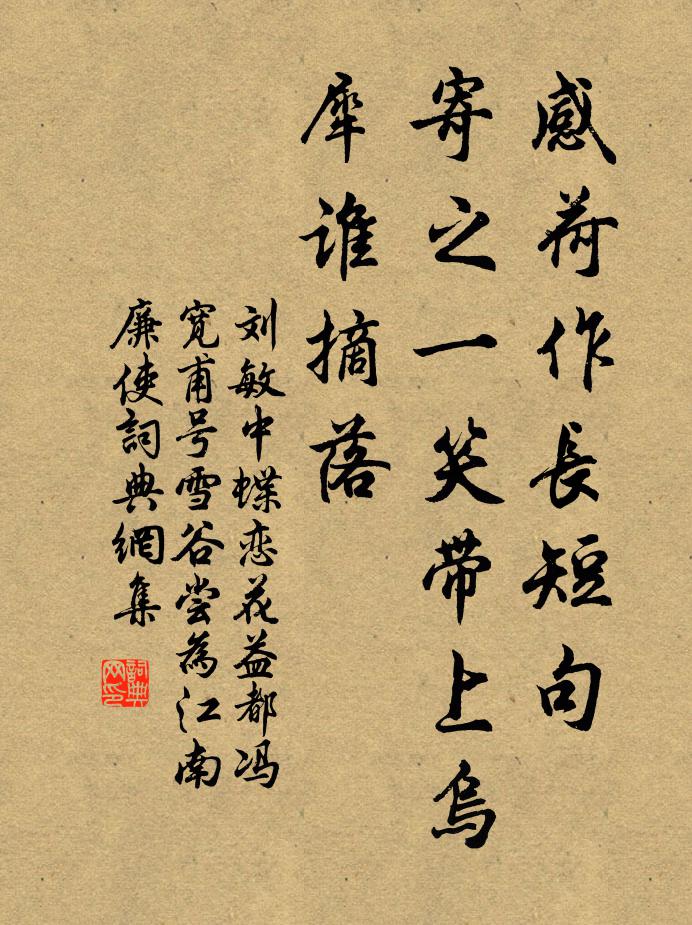 感荷作長短句
寄之一笑带上乌
犀谁摘落
刘敏中蝶恋花益都冯
寬甫号雪谷尝為江南
廉使詞典網集
詞典
网印